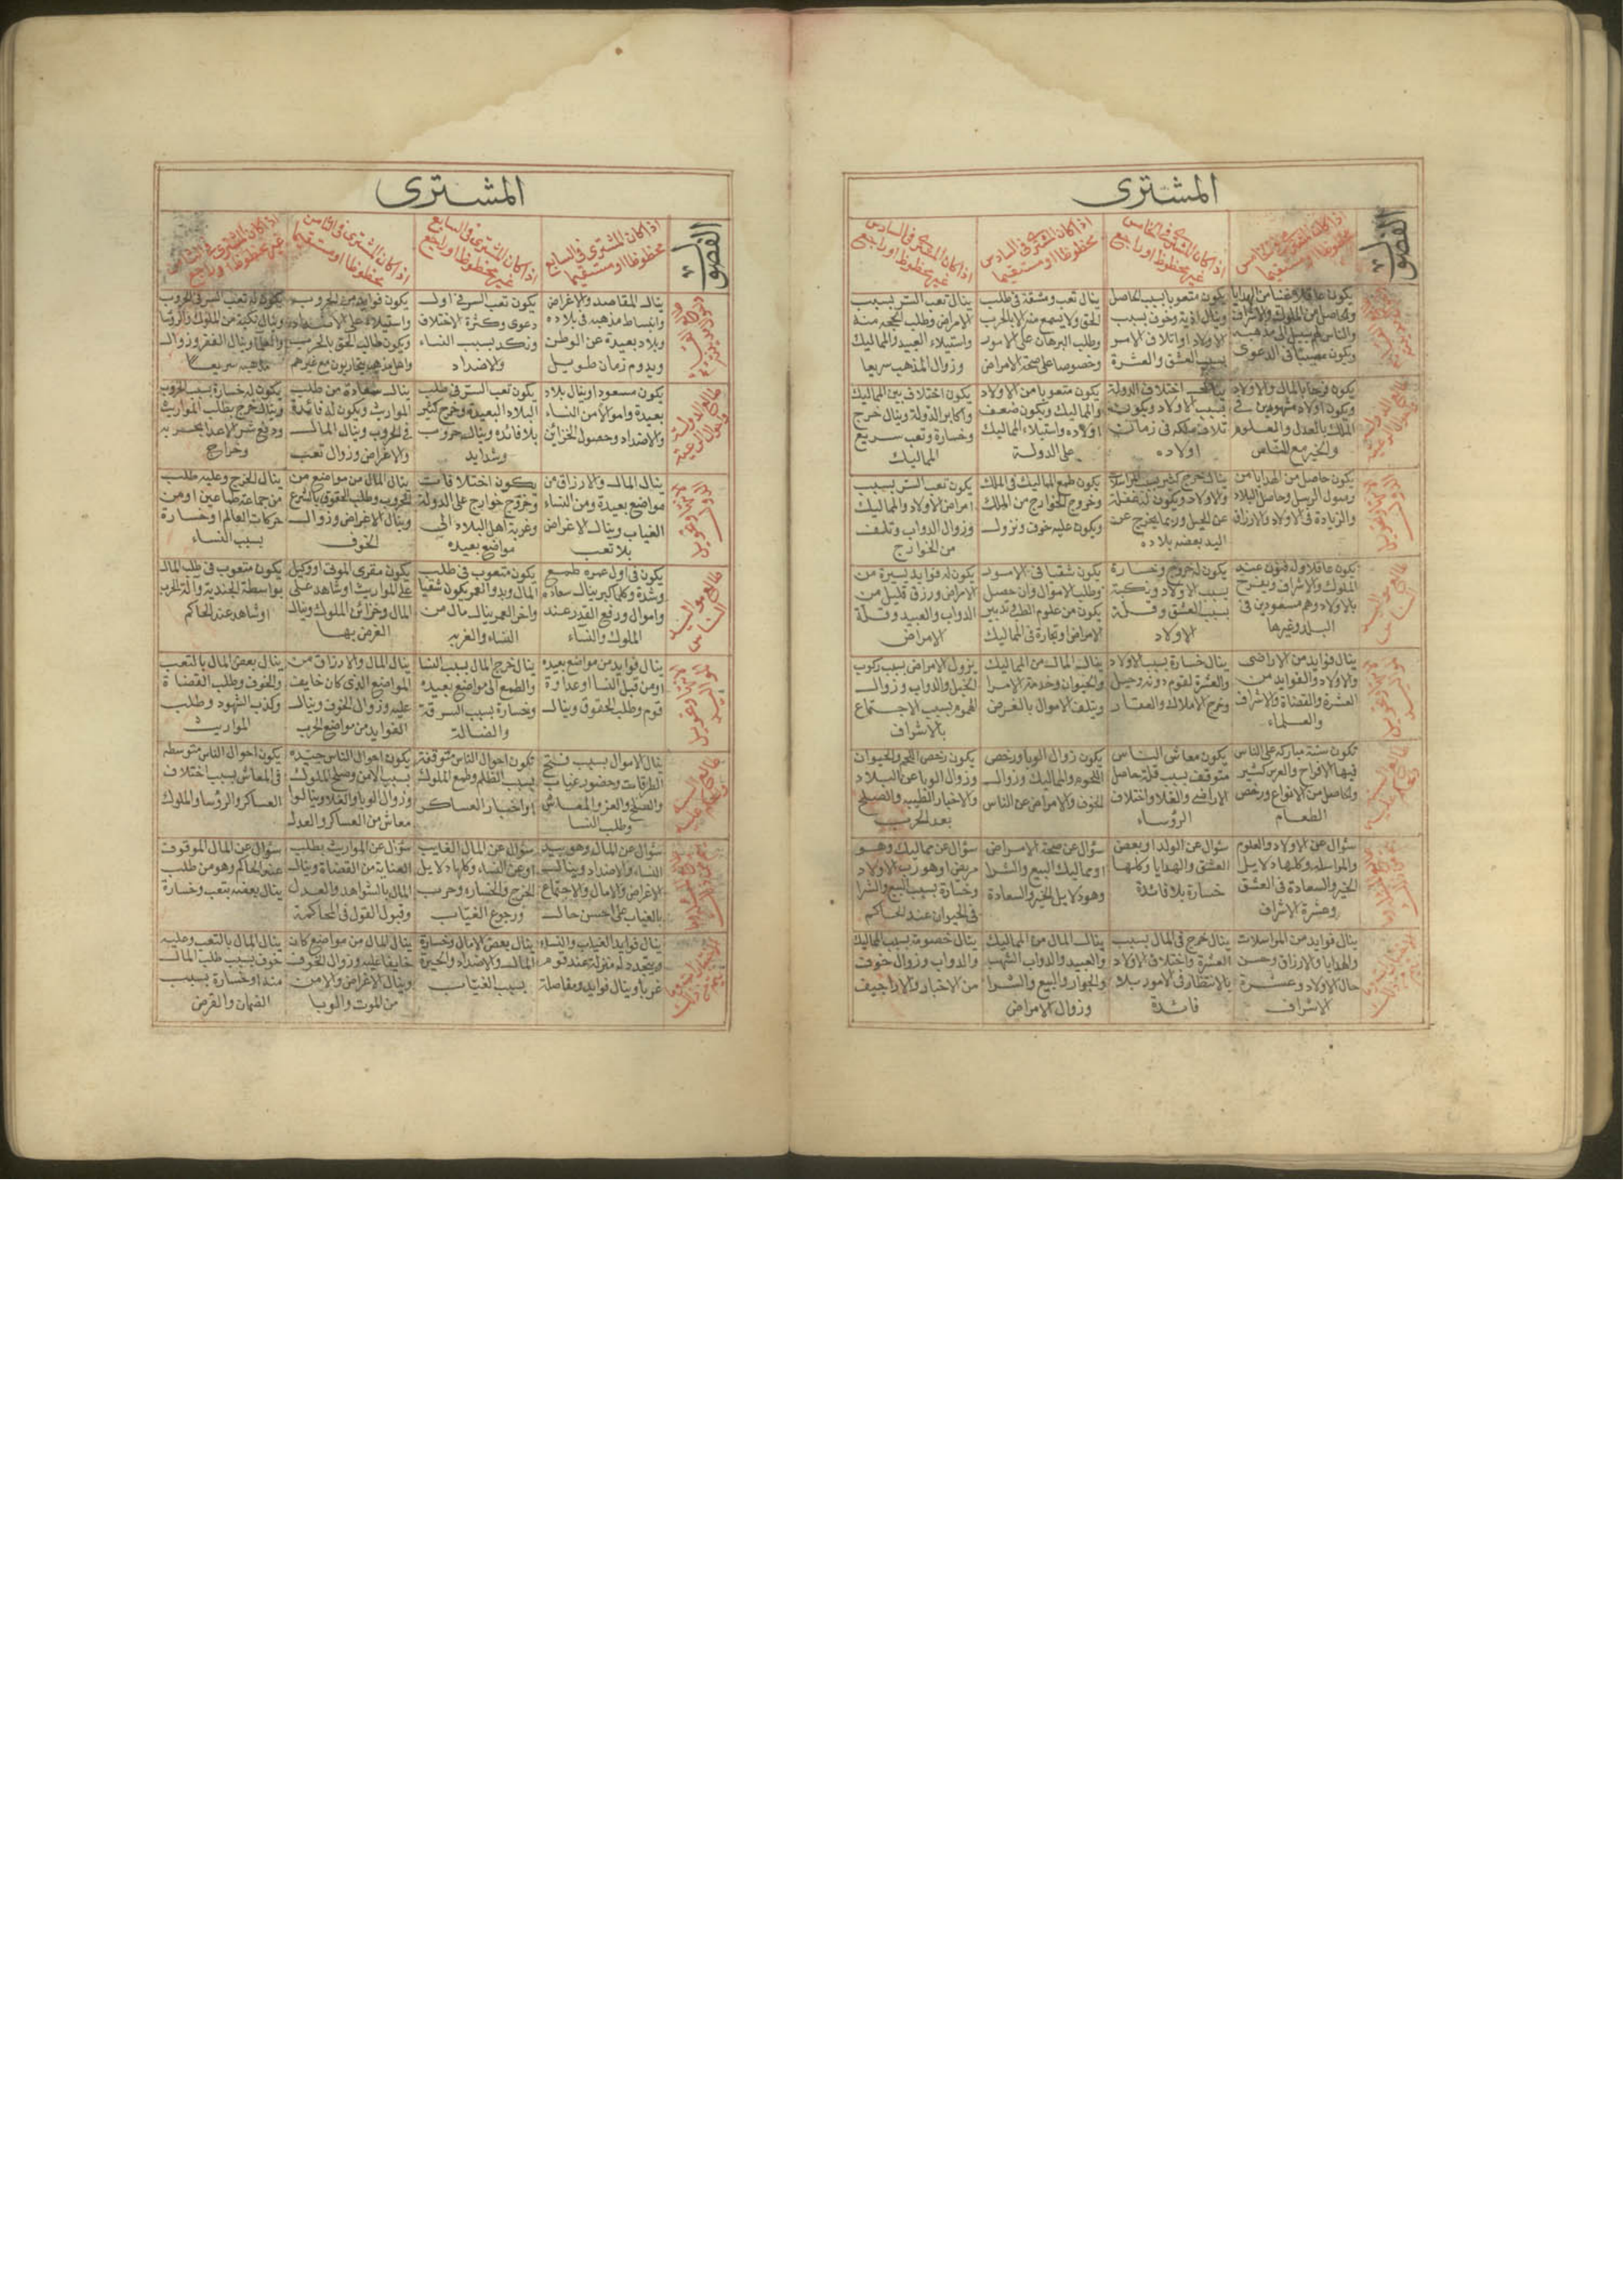 المشترى
الفصول
اذا كان المشترى فى الخامس
محظوظا او مستقيما
اذا كان المشترى فى الخامس
غير محظوظ او راجع
اذا كان المشترى فى السادس
محظوظا او مستقيما
اذا كان المشترى فى السادس
غير محظوظ او راجع
يكون متعوبا بسبب الحاصل
وينال اذية وخوف بسبب
الاولاد او اتلاف الاسر
بسبب العشق والعشرة
ينال تعب ومشقة فى طلب
الحق ولا يسمع منه الا بالحرب
وطلب البرهان على الامور
وخصوصا على صحة الامراض
ينال تعب الستر بسبب
الامراض وطلب الحجه منه
واستيلاء العبيد والمماليك
وزوال المذهب سريعا
يكون فرحا بالمال والاولاد
ويكون اولاده مشهورين فى
الملك بالعدل والعلوم
والخير مع الناس
اختلاف الدولة
بسبب الاولاد ويكون
تلاف ملكه فى زمان
اولاده
يكون متعوبا من الاولاد
والمماليك ويكون ضعف
اولاده واستيلاء المماليك
على الدولة
يكون اختلاف بين المماليك
واكابر الدولة وينال خرج
وخسارة وتعب سريع
المماليك
يكون حاصل من الهدايا من
رسول الرسل وحاصل البلاد
والزيادة فى الاولاد والارزاق
ينال خرج كثير بسبب المراسلة
والاولاد ويكون له غفلة
عن الحيل وربما يخرج عن
اليد بعض بلاده
يكون طمع المماليك فى الملك
وخروج الخوارج من الملك
ويكون عليه خوف ونزول
يكون تعب الستر بسبب
امراض الاولاد والمماليك
وزوال الدواب وتلف
من الخوارج
طالع مواليد
الناس
يكون عاقلا وله فنون عند
الملوك والاشراف ويفرح
بالاولاد وهم مسعودين فى
البلد وغيرها
يكون له خروج وخسارة
بسبب الاولاد ونكبة
بسبب العشق وقلة
الاولاد
يكون شقيا فى الامور
وطلب الاموال وان حصل
يكون من علوم الطب تدبير
الامراض وتجارة فى المماليك
يكون له فوايد يسيرة من
الامراض ورزق قليل من
الدواب والعبيد وقلة
الامراض
ينال فوايد من الاراضى
والاولاد والفوايد من
العشرة والقضاة والاشراف
والعلماء
ينال خسارة بسبب الاولاد
والعشرة لقوم دونه وحيل
وخرج الاملاك والعقار
ينال المال من المماليك
والحيوان وخدمة الامرا
ويتلف الاموال بالغرض
يزول الامراض بسبب ركوب
الخيل والدواب وزوال
الهموم بسبب الاجتماع
بالاشراف
تكون سنة مباركة على الناس
فيها الافراح والعرس كثير
والحاصل من الانواع ورخص
الطعام
يكون معاش الناس
متوقف بسبب قلة حاصل
الاراضى والغلا واختلاف
الرؤساء
يكون زوال الوبا ورخص
اللحوم والمماليك وزوال
الخوف والامراض عن الناس
يكون رخص اللحم والحيوان
وزوال الوبا عن البلاد
والاخبار الطيبه والصلح
بعد الحرب
سؤال عن الاولاد والعلوم
والمراسلة وكلها دلايل
الخير والسعادة فى العشق
وعشرة الاشراف
سؤال عن الولد او بعض
العشق والهدايا وكلها
خسارة بلا فائدة
سؤال عن صحة الامراض
او مماليك البيع والشرا
وهو دلايل الخير والسعادة
سؤال عن مماليك وهو
مريض او هو رب الاولاد
وخسارة بسبب البيع والشرا
فى الحيوان عند الحاكم
ينال فوايد من المراسلات
والهدايا والارزاق وحسن
حال الاولاد وعشرة
الاشراف
ينال خرج فى المال بسبب
العشرة واختلاف الاولاد
بالانتظار فى الامور بلا
فائدة
ينال المال من المماليك
والعبيد والدواب الشهب
والجوار والبيع والشرا
وزوال الامراض
ينال خصومة بسبب المماليك
والدواب وزوال خوف
من الاخبار والاراجيف
المشترى
الفصول
اذا كان المشترى فى السابع
محظوظا او مستقيما
اذا كان المشترى فى السابع
غير محظوظ او راجع
اذا كان المشترى فى الثامن
محظوظا او مستقيما
اذا كان المشترى فى الثامن
غير محظوظ او راجع
ينال المقاصد والاغراض
وانبساط مذهبه فى بلاده
وبلاد بعيدة عن الوطن
ويدوم زمان طويل
يكون تعب السر فى اول
دعوى وكثرة الاختلاف
ونكد بسبب النساء
والاضداد
يكون فوايد من الحروب
واستيلاء على الاضداد
ويكون طالب الحق بالحرب
واهل مذهبه يتحاربون مع غيرهم
يكون مسعود او ينال بلاد
بعيدة واموالا من النساء
والاضداد وحصول الخزاين
يكون تعب الستر فى طلب
البلاد البعيدة وخرج كثير
بلا فائده وينال حروب
وشدايد
ينال سعادة من طلب
المواريث ويكون له فائدة
فى الحروب وينال المال
والاغراض وزوال تعب
يكون له خسارة بسبب الحروب
وينال خرج بطلب المواريث
ودفع شر الاعدا
وخراج
ينال المال والارزاق من
مواضع بعيدة ومن النساء
الغياب وينال الاغراض
بلا تعب
يكون اختلافات
وخروج خوارج على الدولة
وغربة اهل البلاد الى
مواضع بعيده
ينال المال من مواضع من
الحروب وطلب الحقوق بالشرع
وينال الاغراض وزوال
الخوف
ينال الخرج وعليه طلب
من جماعة طماعين او من
حركات العالم او خسارة
بسبب النساء
طالع مواليد
الناس
يكون فى اول عمره طمع
وشدة وكلما كبر ينال سعادة
واموال ورفيع القدر عند
الملوك والنساء
يكون متعوب فى طلب
المال وبدو العمر يكون شقيا
واخر العمر ينال مال من
النساء والغربه
يكون مقرى الموتى او وكيل
على المواريث او شاهد على
المال وخزائن الملوك وينال
الغرض بها
يكون متعوب فى طلب المال
بواسطة الجندية والة الحرب
او شاهد عند الحاكم
ينال فوايد من مواضع بعيده
او من قبل النسا او عداوة
قوم وطلب الحقوق وينال
ينال خرج المال بسبب النسا
والطمع الى مواضع بعيده
وخسارة بسبب السرقة
والضالة
ينال المال والارزاق من
المواضع الذى كان خايف
عليه وزوال الخوف وينال
الفوايد من مواضع الحرب
ينال بعض المال بالتعب
والخوف وطلب القضاة
وكذب الشهود وطلب
المواريث
ينال الاموال بسبب فتح
الطرقات وحضور غياب
والصلح والعز والمعاش
وطلب النسا
تكون احوال الناس متوقفة
بسبب الظلم وطمع الملوك
واخبار العساكر
يكون احوال الناس جيده
بسبب الامن وصلح الملوك
وزوال الوبا والغلا وينالوا
معاش من العساكر والعدل
يكون احوال الناس متوسطه
فى المعاش بسبب اختلاف
العساكر والرؤسا والملوك
سؤال عن المال وهو بيد
النساء والاضداد وينال
الاغراض والامال والاجتماع
بالغياب على احسن حال
سؤال عن المال الغايب
او عن النساء وكلها دلايل
الخرج والخساره وحرب
ورجوع الغياب
سؤال عن المواريث بطلب
العناية من القضاة وينال
المال بالشواهد والعدل
وقبول القول فى المحاكمة
سؤال عن المال الموقوف
عند الحاكم وهو من طلب
ينال بعضه بتعب وخسارة
ينال فوايد الغياب والنساء
ويتجدد له منزلة عند قوم
غربا وينال فوايد ومفاصلة
ينال بعض الامال وخسارة
المال والاضداد والحيرة
بسبب الغياب
ينال المال من مواضع كان
خايفا عليه وزوال الخوف
وينال الاغراض والامن
من الموت والوبا
ينال المال بالتعب وعليه
خوف بسبب طلب المال
منه او خسارة بسبب
الضمان والقرض